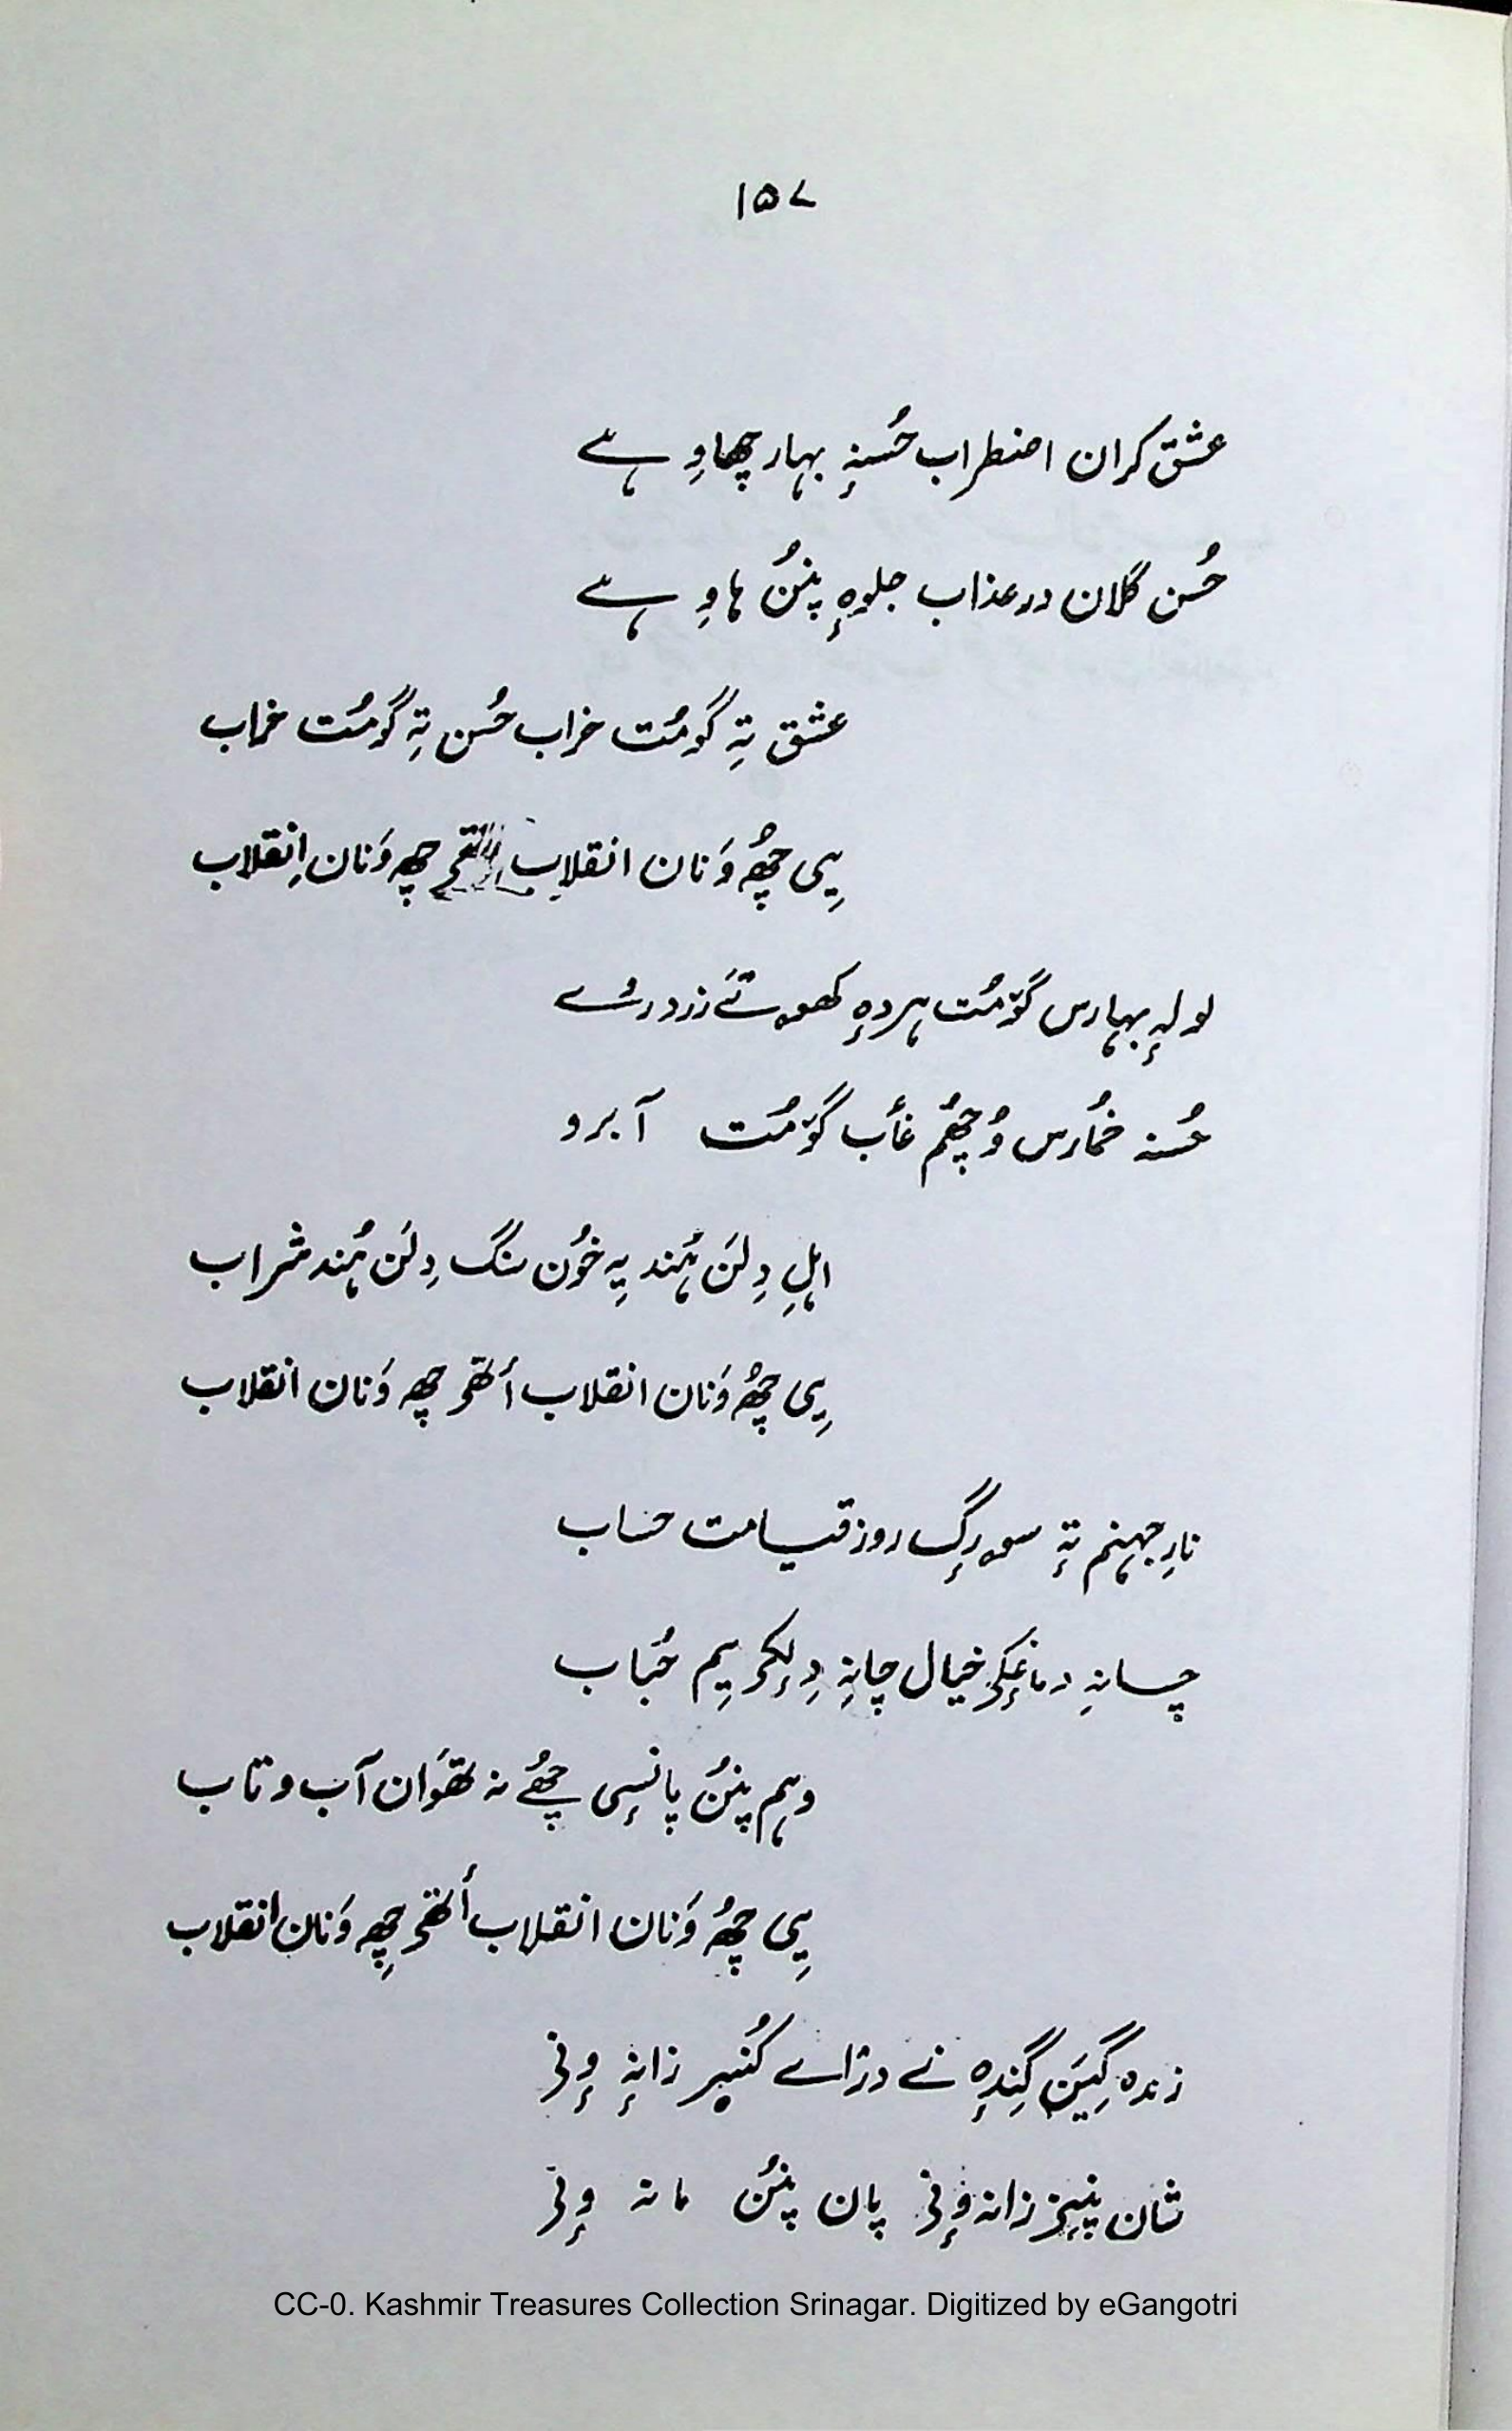 ۱۵۷
عشق کران اضطراب حُسنہٕ بہار چھاوِ ہے
حُسن گلان در عذاب جلوہٕ پننُ ہاوِ ہے
عشق تہِ گومُت خراب حُسن تہِ گومُت خراب
یِی چھُ وَنان انقلاب چھِ وَنان اِنقلاب
لولہٕ بہارس گوٚمُت ہردہٕ کھوتَے زرد رُے
حُسنہ خُمارس وُچھُم غٲب گوٚمُت آبرو
اہلِ دِلَن ہُند یہِ خوٗن سنگ دِلَن ہُند شراب
یِی چھُ وَنان انقلاب أتھۍ چھِ وَنان انقلاب
نارِ جہنم تہٕ سورگٕ روز قیامت حساب
چانہِ دماغٕکۍ خیال چانہِ دِلٕکۍ یِم حُباب
وہم پننُ پانسٕی چھُے نہ تھَوان آب و تاب
یِی چھُ وَنان انقلاب أتھۍ چھِ وَنان انقلاب
زندہ گِیَن گِندہٕ نے دراے کُنیر زانہٕ وٕنۍ
شان پنیز زانہ وٕنۍ پان پننُ مانہ وٕنۍ
CC-0. Kashmir Treasures Collection Srinagar. Digitized by eGangotri